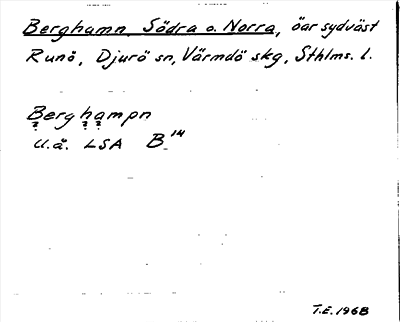 Berghamn, Södra o. Norra, öar sydväst
Runö, Djurö sn, Värmdö skg, Sthlms. l.
Berghampn
? ? ?
u.å. LSA B 14
T.E. 1968